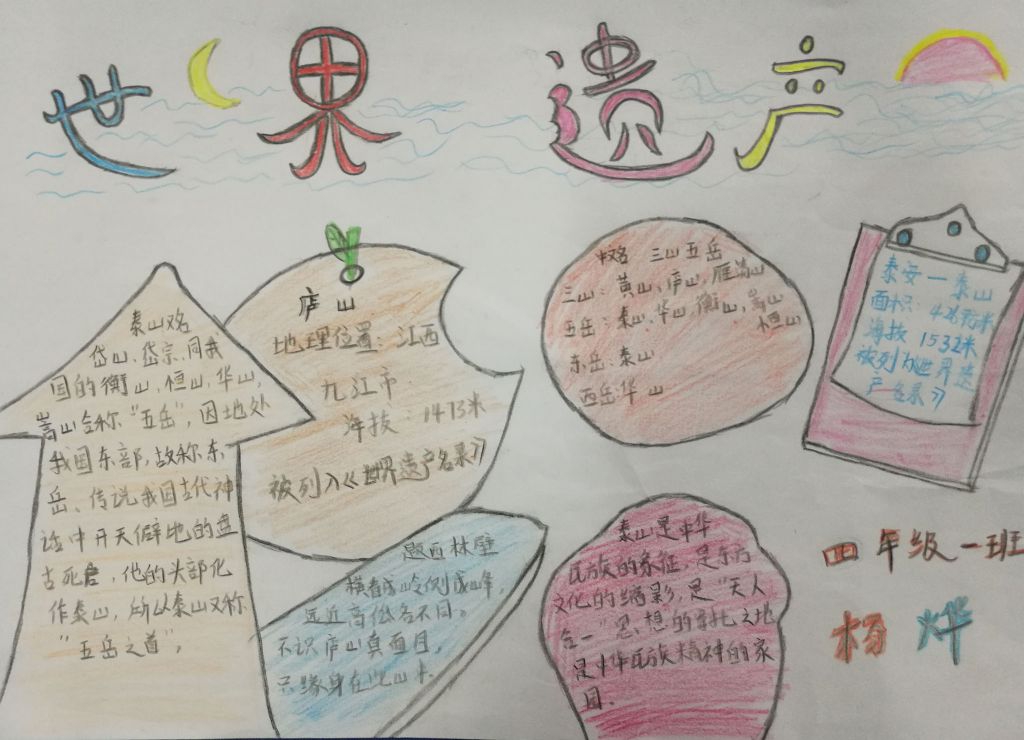 世界遗产
泰山又名
岱山、岱宗、同我
国的衡山，恒山，华山，
嵩山合称“五岳”，因地处
我国东部，故称东
岳、传说我国古代神
话中开天僻地的盘
古死后，他的头部化
作泰山，所以泰山又称
“五岳之首”，
庐山
地理位置：江西
九江市
海拔：1473米
被列入《世界遗产名录》
题西林壁
横看成岭侧成峰，
远近高低各不同。
不识庐山真面目，
只缘身在此山中.
三山五岳
三山：黄山、庐山、雁荡山
五岳：泰山、华山、衡山、嵩山
恒山
东岳：泰山
西岳：华山
泰安一泰山
面积：426平方米
海拔 1532米
被列为世界遗
产名录》
泰山是中华
民族的象征，是东方
文化的缩影，是“天人
合一”思想的寄托之地
是中华民族精神的家
园.
四年级一班
杨烨